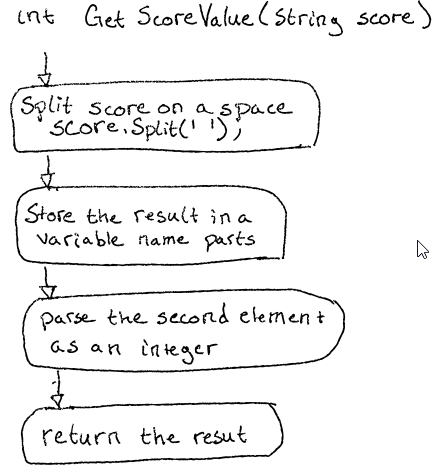 int Get ScoreValue(String score)
Split score on a space
score.Split(' ');
Store the result in a
variable name parts
parse the second element
as an integer
return the resut